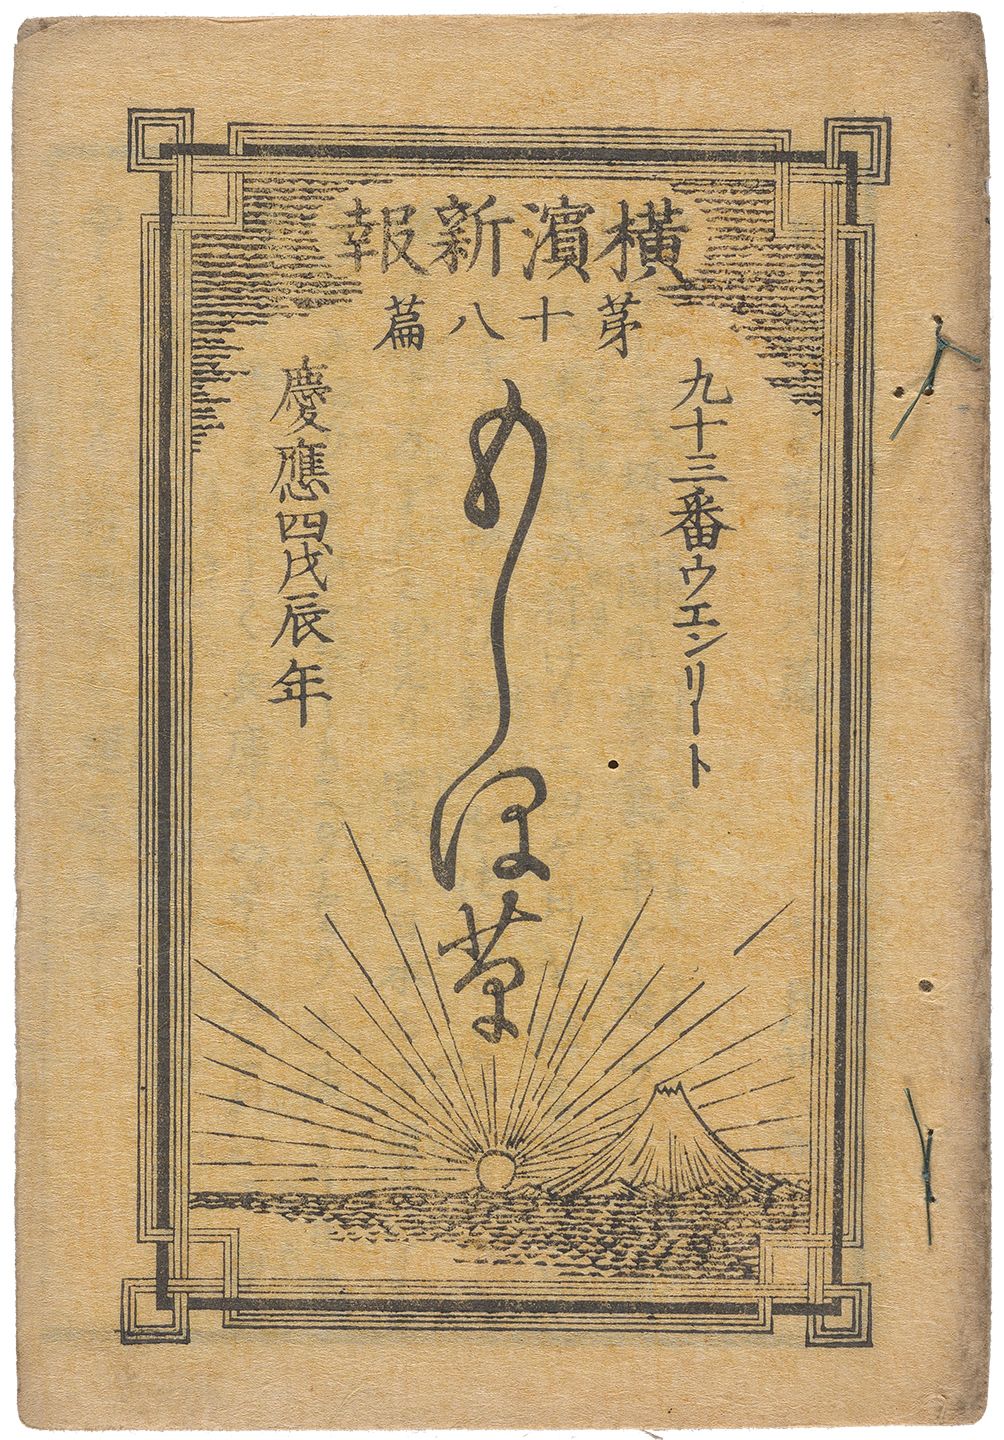 横濱新報
茅十八篇
九十三番ウエンリート
もしほ草
慶應四戊辰年